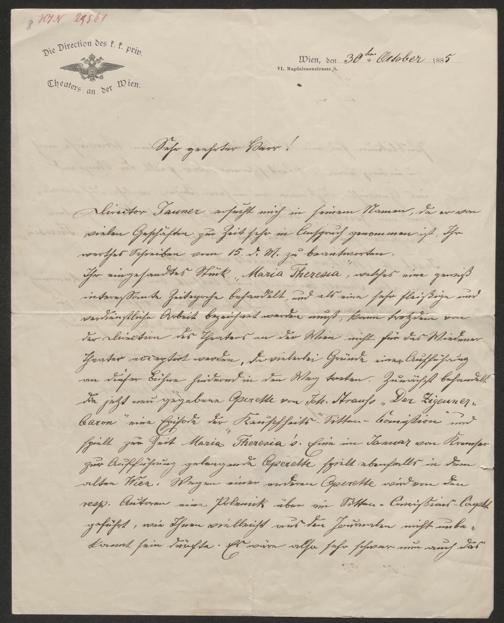 HIN 29561
Die Direction des k. k. priv.
Theaters an der Wien.
Wien, den 30ten October 1885
VI. Magdalenenstrasse 8.
Sehr geehrter Herr!
Director Jauner ersucht mich in seinem Namen, da er von
vielen Geschäften zur Zeit sehr in Anspruch genommen ist, Ihr
werthes Schreiben vom 15. d. M. zu beantworten.
Ihr eingesandtes Stück „Maria Theresia", welches eine gewiß
interessante Zeitepoche behandelt und als eine sehr fleißige und
verdienstliche Arbeit bezeichnet werden muß, kann trotzdem von
der Direction des Theaters an der Wien nicht für das Wiedener
Theater acceptirt werden, da vielerlei Gründe einer Aufführung
an dieser Bühne hindernd in den Weg treten. Zunächst behandelt
die jetzt neu gegebene Operette von Joh. Strauss „Der Zigeuner-
baron" eine Episode der Keuschheits- Sitten-Comission und
spielt zur Zeit Maria Theresia's. Eine im Jannar von
zur Aufführung gelangende Operette spielt ebenfalls in dem
alten Wien. Wegen einer anderen Operette wird von den
resp. Autoren eine Polemick über ein Sitten-Comissions-
geführt, wie Ihnen vielleicht aus den Journalen nicht unbe-
kannt sein dürfte. Es wäre also sehr schwer nun auch das